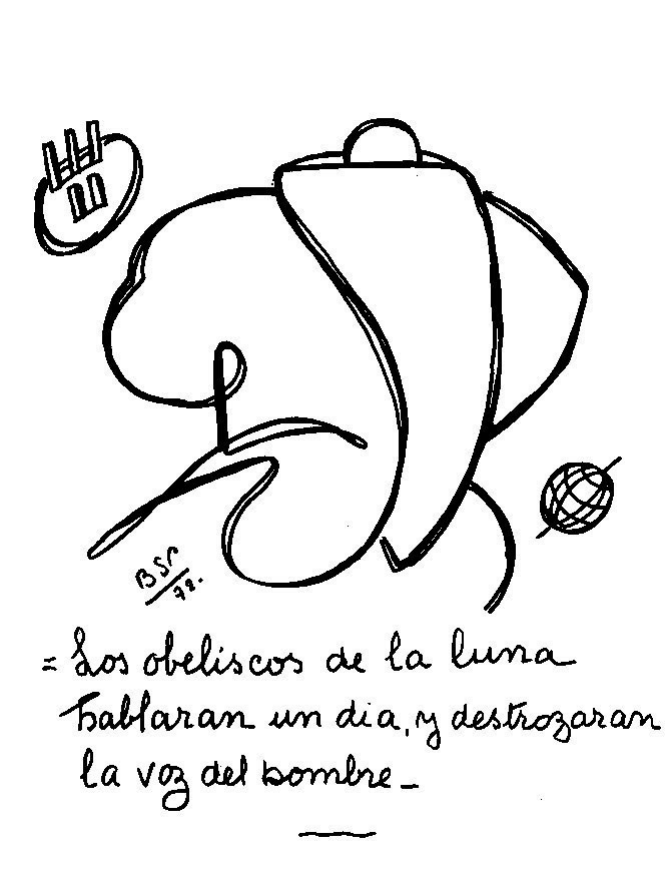 BSP
72.
= Los obeliscos de la luna
hablaran un dia, y destrozaran
la voz del hombre -